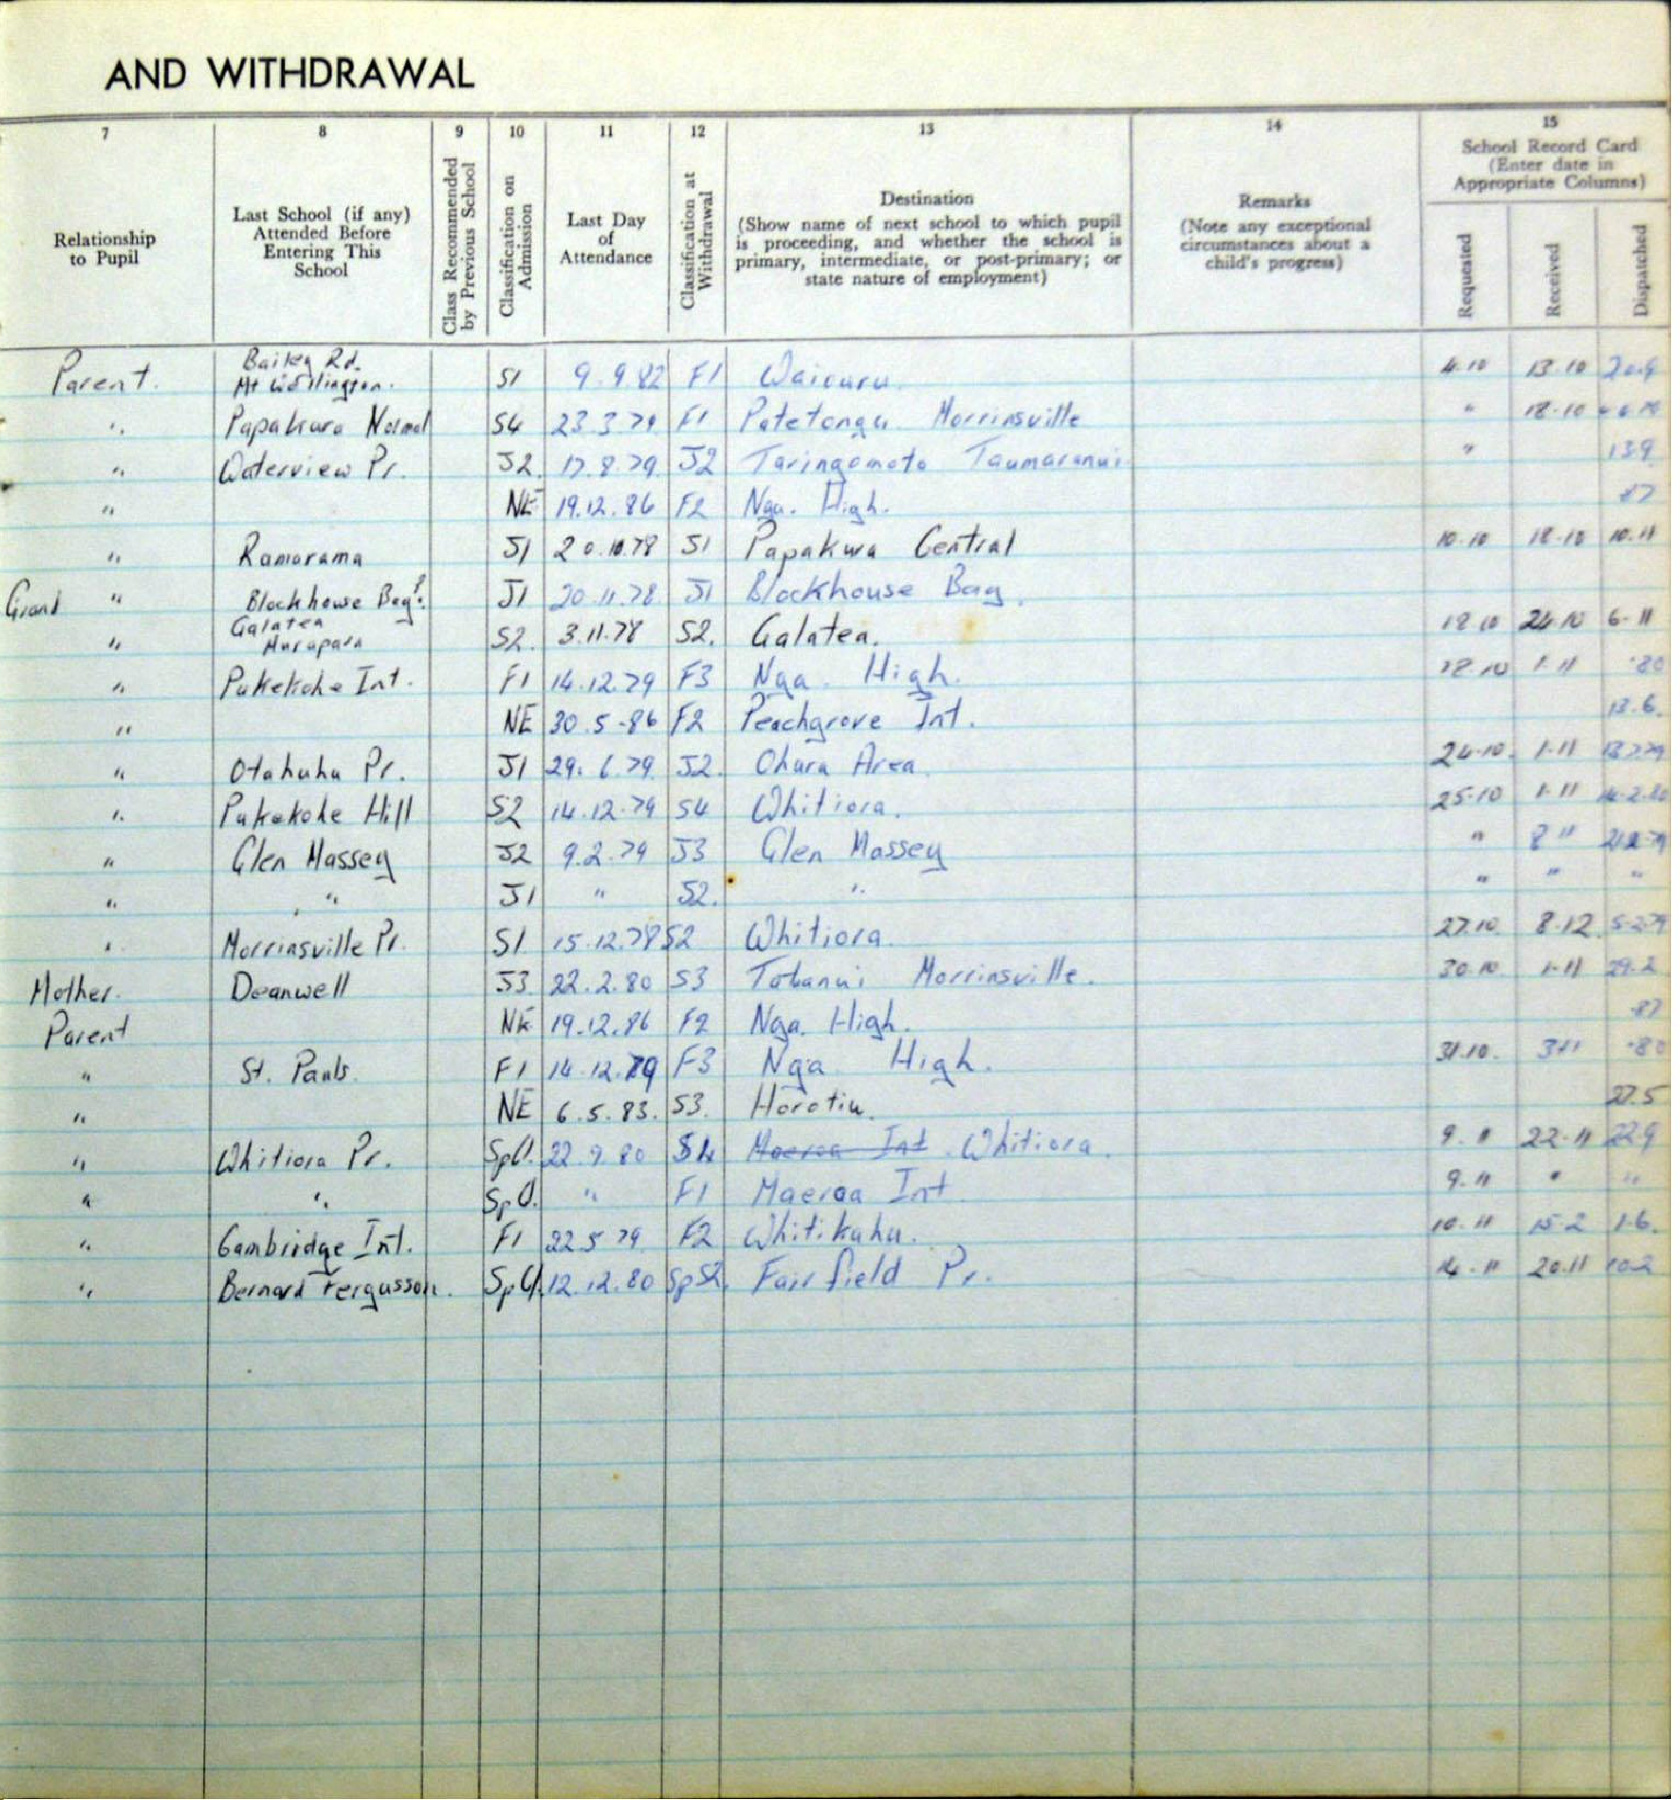 AND WITHDRAWAL
7 8 9 10 11 12 13 14 15
Relationship to Pupil
Last School (if any) Attended Before Entering This School
Class Recommended by Previous School
Classification on Admission
Last Day of Attendance
Classification at Withdrawal
Destination
(Show name of next school to which pupil
is proceeding, and whether the school is
primary, intermediate, or post-primary; or
state nature of employment)
Remarks
(Note any exceptional
circumstances about a
child's progress)
School Record Card
(Enter date in
Appropriate Columns)
Requested Received Dispatched
Bailey Rd.
Parent. Mt Wellington. S1 9.9.82 F1 Waiouru. 4.10 13.10 20.9
" Papakura Normal S4 23.3.79 F1 Patetonga Morrinsville " 18.10
" Waterview Pr. J2. 17.8.79 J2 Taringamotu Taumaranui " 13.9
" NE 19.12.86 F2 Nga. High. 87
" Ramarama J1 20.10.78 J1 Papakura Central 10.10 18.10 10.11
Grand " Blockhouse Bay? J1 20.11.78 J1 Blockhouse Bay.
Galatea
" Murupara S2. 3.11.78 S2. Galatea. 18.10 24.10 6-11
" Pukekohe Int. F1 14.12.79 F3 Nga. High. 18.10 1-11 '80
" NE 30.5-86 F2 Peachgrove Int. 13.6.
" Otahuhu Pr. J1 29.6.79 J2. Ohura Area. 24-10. 1-11
" Pukekohe Hill S2 14.12.79 S4 Whitiora. 25-10 1-11 14.2.80
" Glen Massey J2 9.2.79 J3 Glen Massey " 8 "
" " J1 " S2. " " " "
" Morrinsville Pr. S1 15.12.78 S2 Whitiora. 27.10. 8-12. 5-2-79
Mother. Deanwell J3 22.2.80 S3 Tohanui Morrinsville. 30.10 1-11 29.2
Parent NE 19.12.86 F2 Nga. High. 87
" St. Pauls. F1 14.12.79 F3 Nga High. 31.10. 3-11 '80
" NE 6.5.83. S3. Horotiu. 27.5
" Whitiora Pr. SpCl. 22.9.80 S4 Maeroa Int. Whitiora. 9.11 22-11 22.9
" " SpCl. " F1 Maeroa Int 9.11 " "
" Cambridge Int. F1 22.5.79 F2 Whitikahu. 10.11 15-2 1-6.
" Bernard Fergusson. SpCl. 12.12.80 SpS2. Fairfield Pr. 14-11 20.11 10.2